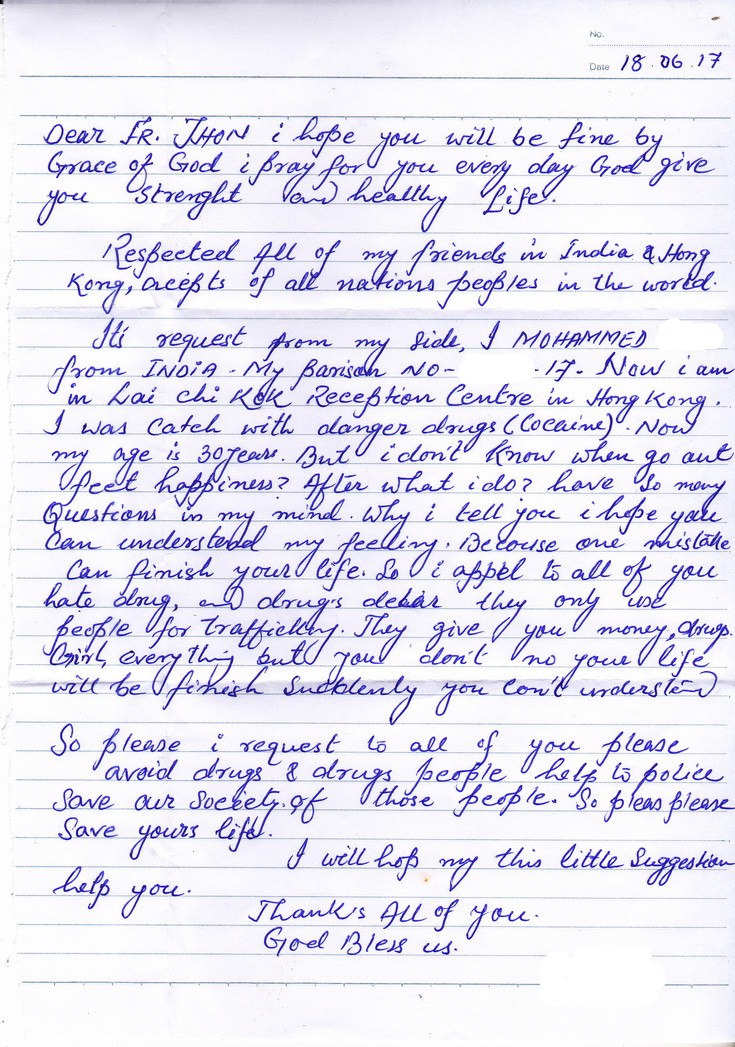 No.
Date 18.06.17
Dear FR. JHON i hope you will be fine by
Grace of God i pray for you every day God give
you Strenght and healthy Life.
Respected All of my friends in India & Hong
Kong, accepts of all nations peoples in the world.
It's request from my side, I MOHAMMED
from INDIA - My parison NO- .17. Now i am
in Lai chi KoK Reception Centre in Hong Kong.
I was Catch with danger drugs (Cocaine). Now
my age is 30 years. But i don't Know when go out
feet happiness? After what i do? have So many
Questions in my mind. Why i tell you i hope you
Can understand my feeling. Because one mistake
Can finish your life. So i appel to all of you
hate drug, and drugs they only use
people for trafficking. They give you money, drugs.
Girl, everything but you don't no your life
will be finish Suddenly you Con't understand
So please i request to all of you please
avoid drugs & drugs people help to police
Save our Society of those people. So pleas please
Save yours life.
I will hop my this little Suggestion
help you.
Thank's All of You.
God Bless us.